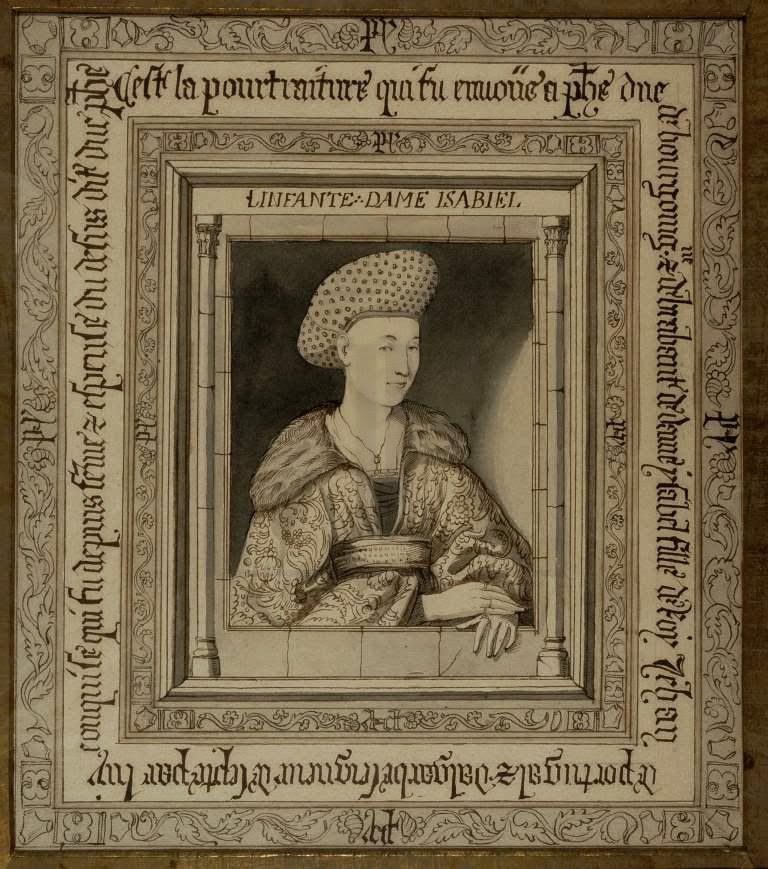 L'INFANTE∴DAME ISABIEL
Cest la pourtraiture qui fu enuoiie a phe duc
de bourgoingne & de brabant de dame ysabel fille de roy Jehan
de portugal & dalgarbe seigneur de septe par luy
conquise qui fu depuis feme & espeuse du desus dit duc phe